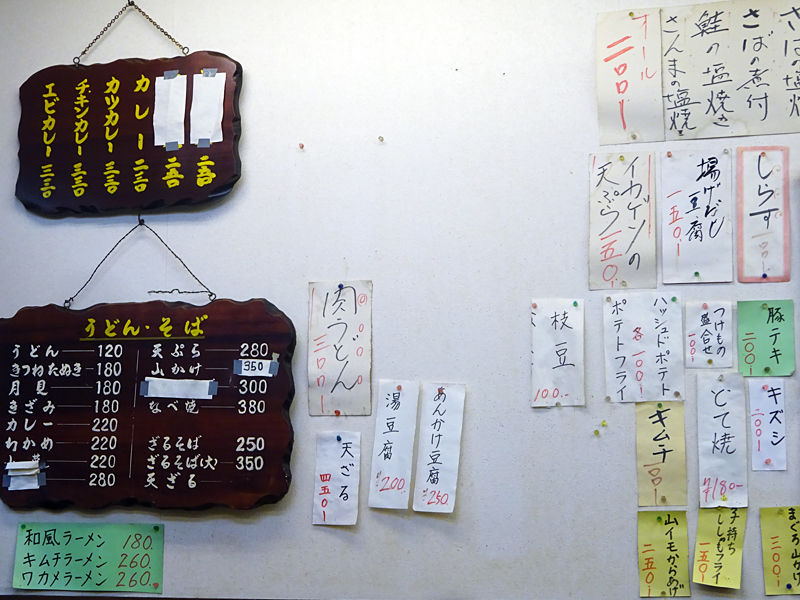 カレー 二三〇
カツカレー 三三〇
チキンカレー 三三〇
エビカレー 三三〇
うどん・そば
うどん 120
きつねたぬき 180
月見 180
きざみ 180
カレー 220
わかめ 220
220
280
天ぷら 280
山かけ 350
300
なべ焼 380
ざるそば 250
ざるそば(大) 350
天ざる
和風ラーメン 180.
キムチラーメン 260.
ワカメラーメン 260.
肉うどん
三〇〇
天ざる
四五〇
湯豆腐
200.
あんかけ豆腐
250.
さばの煮付
鮭の塩焼き
さんまの塩焼
オール
二〇〇
しらす
一〇〇
揚げだし
豆腐
一五〇
イカゲソの
天ぷら 一五〇
枝豆
100.
ハッシュドポテト
各一〇〇
ポテトフライ
つけもの
盛合せ
一〇〇
豚テキ
二〇〇
キムチ
一〇〇
どて焼
180-
キズシ
二〇〇
山イモからあげ
二五〇
子持ち
ししゃもフライ
一五〇
まぐろ山かけ
三〇〇